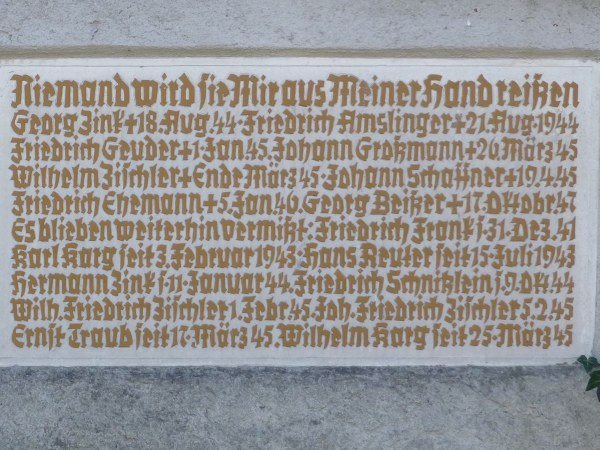 Niemand wird sie Mir aus Meiner Hand reißen
Georg Zink+18.Aug.44 Friedrich Amslinger+21.Aug.1944
Friedrich Geuder+1.Jan.45. Johann Großmann+26.März 45
Wilhelm Zischler+Ende März 45. Johann Schaffner+19.4.45
Friedrich Ehemann+5.Jan.46. Georg Beißer+17.Oktobr.47
Es blieben weiterhin vermißt: Friedrich Frank s.31.Dez.41
Karl Karg seit 3.Februar 1943. Hans Reuter seit 15.Juli 1943
Hermann Zink s.11.Januar 44. Friedrich Schnitzlein s.9.Okt.44
Wilh. Friedrich Zischler 1.Febr 45. Joh. Friedrich Zischler 5.2.45
Ernst Traub seit 17.März 45. Wilhelm Karg seit 25.März 45